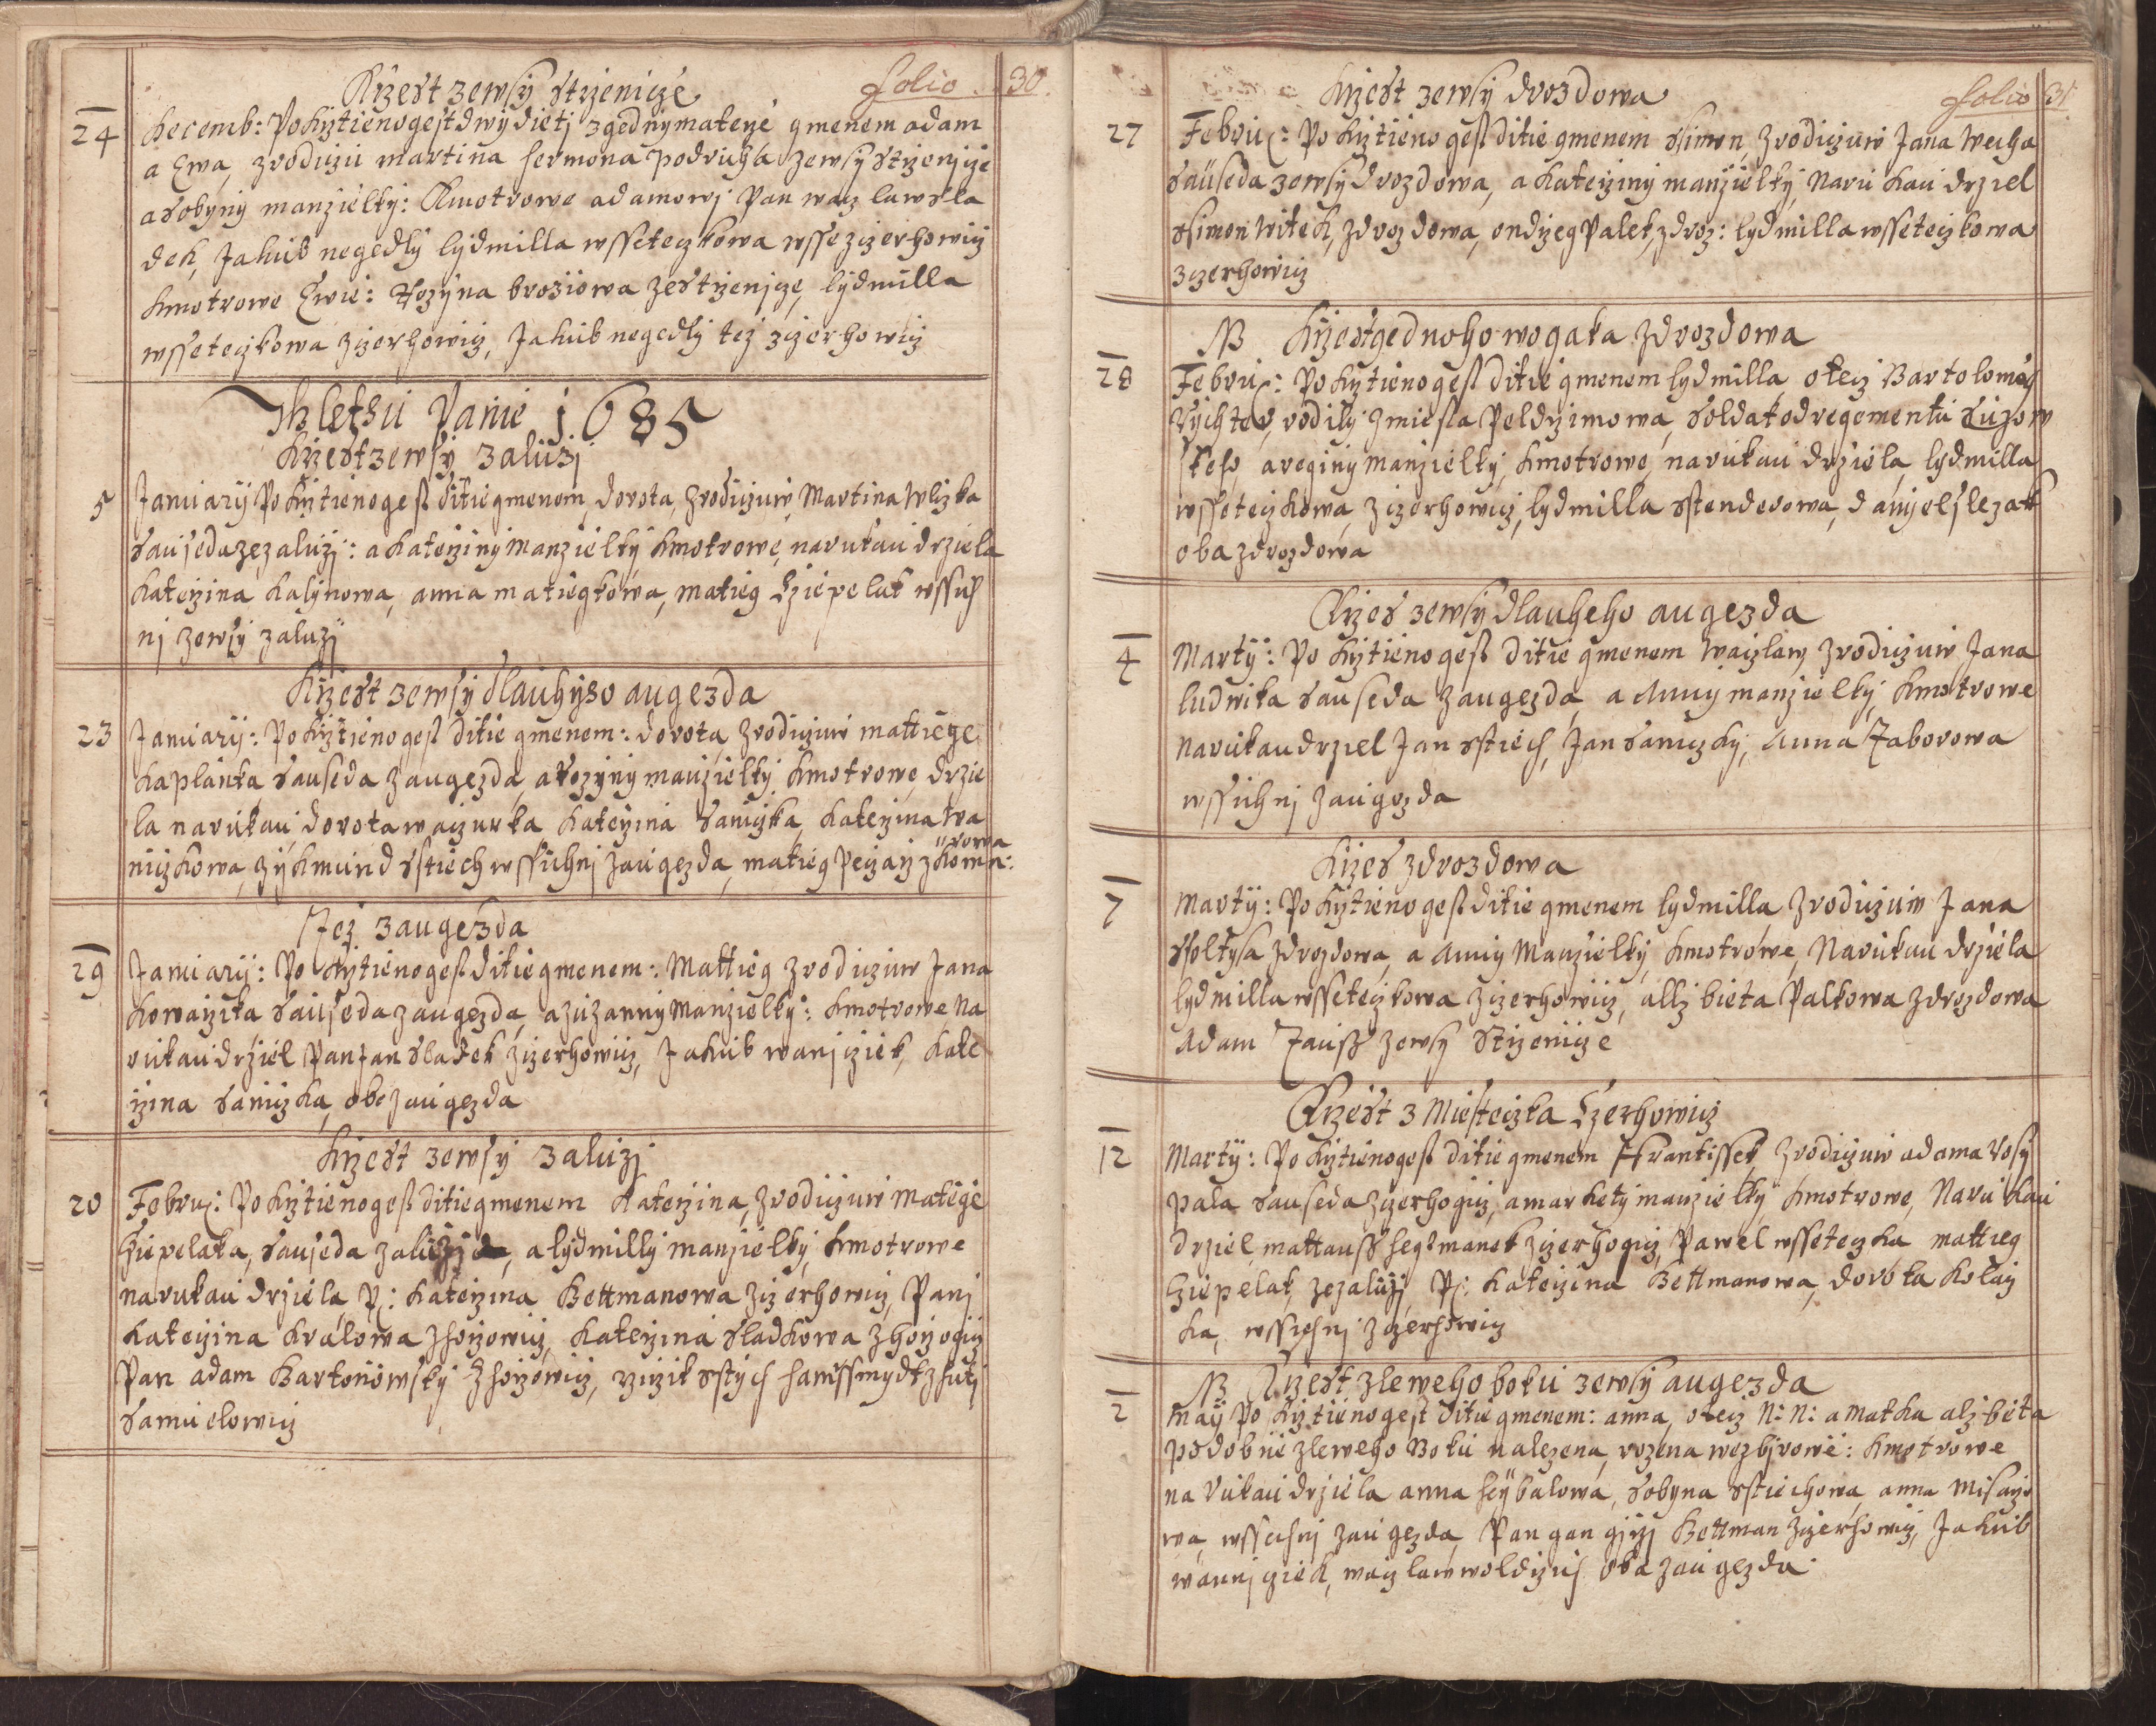 Krzest zewsy strzenicze
folio 30.
24 Decemb: Pokrztieno gest dwy dietj zgedny mateře gmenem adam
a Ewa, zrodiczu martina hermona podruha zewsy Strzenicze
a Sobyny manzielky: Kmotrowe adamowj Pan waczlaw sla
dek, Jakub negedly lydmilla wsseteczkowa wsse z czerhowicz
kmotrowe Ewie: Rozyna broziowa ze Strzenicze, lydmilla
wsseteczkowa z czerhowicz, Jakub negedly tez z czerhowicz
Tho Lethu Panie 1685
Krzest zewsy zaluzj
5 Januarij Pokrztieno gest ditie gmenem dorota, zrodiczuw Martina wlczka
Sauseda ze zaluzj: a kateržiny Manzielky kmotrowe, na rukau drziela
Kateržina Kalynowa, anna matiegkowa, matieg Cziepelak wssich
nj zewsy zaluzj
Krzest zewsy dlauhyho augezda
23 Januarij: Pokrztieno gest ditie gmenem: dorota, zrodiczuw mattiege
Kaplanka Sauseda z augezda, a rozyny manzielky kmotrowe, drzie
la na rukau dorota waczurka kateržina Saniczka, kateržina wa
niczkowa, zykmund Sstiech wssichnj z augezda, matieg
Tez z augezda
29 Januarij: Pokrztieno gest ditie gmenem: Mattieg zrodiczuw Jana
Kowarzika Sauseda z augezda, a zuzanny Manzielky: kmotrowe Na
rukau drziel Pan Jan Sladek z czerhowicz, Jakub wanjcziek, kate
rzina Saniczka, obe z augezda
Krzest zewsy zaluzj
20 Febru: Pokrztieno gest ditie gmenem kateržina, zrodiczuw Matege
Cziepelaka, Sauseda zaluzj, a lydmilly manzielky, kmotrowe
na rukau drziela, P: kateržina Bettmanowa z czerhowicz, Panj
kateržina Kralowa z horzowicz, kateržina Sladkowa z horzogicz
Pan adam Bartonowsky z horzowicz, Sstiech hanssmydt z hutj
Samuelowicz
Krzest zewsy drozdowa
folio 31
27 Febru: Pokrztieno gest ditie gmenem Ssimon, zrodiczuw Jana Wecha
Sauseda zewsy drozdowa, a kateržiny manzielky, na rukau drziel
Ssimon witek, z drozdowa, ondrzeg Palek, z droz: lydmilla wsseteczkowa
z czerhowicz
NB Krzest gednoho wogaka z drozdowa
28 Febru: Pokrztieno gest ditie gmenem lydmilla, otecz Bartolomeg
Rychter, rodily z miesta Peldrzimowa, Soldat od regementu
skeho, a reginy manzielky, kmotrowe, na rukau drziela, lydmilla
wsseteczkowa, z czerhowicz, lydmilla Sstenderowa, danyel slezak
oba z drozdowa
Krzest zewsy dlauheho augezda
4 Martij: Pokrztieno gest ditie gmenem waczlaw, zrodiczuw Jana
ludwika Sauseda z augezda, a Anny manzielky, kmotrowe
na rukau drziel Jan Sstiech, Jan Saniczky, Anna Taborowa
wssichnj z augezda
Krzest z drozdowa
7 Martij: Pokrztieno gest ditie gmenem lydmilla, zrodiczuw Jana
Ssoltysa z drozdowa, a Anny Manzielky, kmotrowe, Na rukau drziela
lydmilla wsseteczkowa z czerhowicz, allzbieta Palkowa z drozdowa
Adam Tauss zewsy Strzenicze
Krzest z Miesteczka Czerhowicz
12 Martij: Pokrztieno gest ditie gmenem Frantissek, zrodiczuw adama Rosy
pala Sauseda z czerhogicz, a markety manzielky kmotrowe, Na rukau
drziel, mattauss hegtmanek z czerhogicz, Pawel wsseteczka mattieg
Cziepelak, ze zaluzj, P: kateržina Bettmanowa, dorota kolarz
ka, wssichnj z czerhowicz
NB Krzest z leweho boku zewsy augezda
2 Maij Pokrztieno gest ditie gmenem: anna, otecz N: N: a Matka alzbeta
podobnie z leweho Boku nalezena, rozena w ezbjrowe: kmotrowe
na rukau drziela anna heybalowa, Sobyna Sstiechowa, anna Misarzo
wa, wssichnj z augezda, Pan gan girzj Bettman z czerhowicz, Jakub
wannjcziek, waczlaw woldrzich oba z augezda.